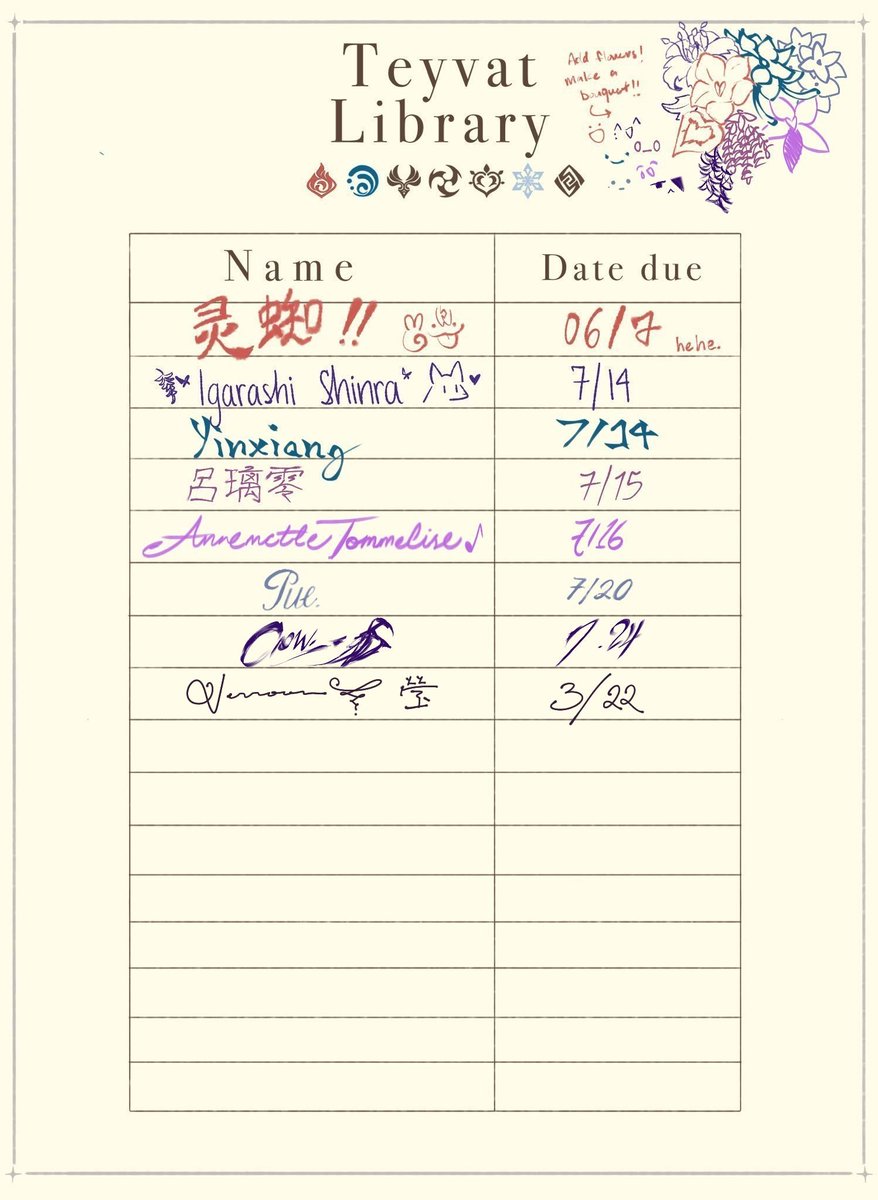 Teyvat
Library
Add flowers!
make a
bouquet!!
Name Date due
灵蜘!! 06/7 hehe.
Igarashi Shinra 7/14
Yinxiang 7/14
呂璃零 7/15
Annemette Tommelise♪ 7/16
Pue. 7/20
Crow. 7.24
莹 3/22